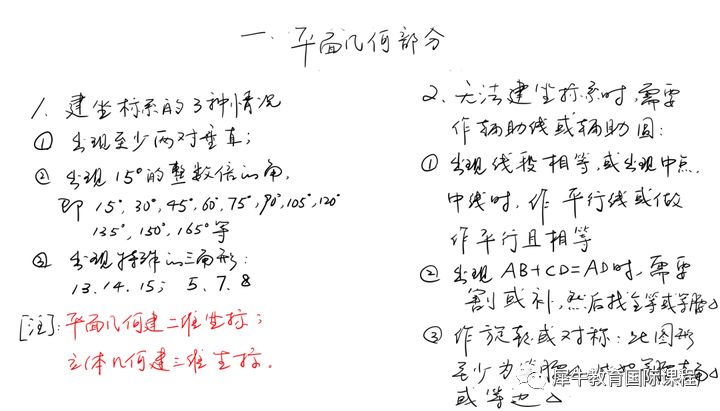 一、平面几何部分
1、建坐标系的3种情况
① 出现至少两对垂直;
② 出现15°的整数倍的角,
即 15°, 30°, 45°, 60°, 75°, 90°, 105°, 120°
135°, 150°, 165° 等
③ 出现特殊的三角形:
13、14、15; 5、7、8
[注]: 平面几何建二维坐标;
立体几何建三维坐标.
2、无法建坐标系时,需要
作辅助线或辅助圆:
① 出现线段相等,或出现中点,
中线时,作 平行线或做
作平行且相等
② 出现 AB+CD=AD时,需要
割或补,然后找全等或等腰△
③ 作旋转或对称:此图形
至少为等腰△
或等边△
犀牛教育国际课程